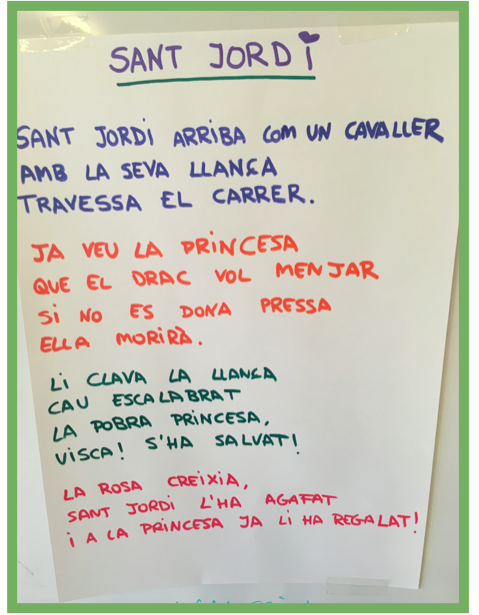 SANT JORDI
SANT JORDI ARRIBA COM UN CAVALLER
AMB LA SEVA LLANÇA
TRAVESSA EL CARRER.
JA VEU LA PRINCESA
QUE EL DRAC VOL MENJAR
SI NO ES DONA PRESSA
ELLA MORIRÀ.
LI CLAVA LA LLANÇA
CAU ESCALABRAT
LA POBRA PRINCESA,
VISCA! S'HA SALVAT!
LA ROSA CREIXIA,
SANT JORDI L'HA AGAFAT
I A LA PRINCESA JA LI HA REGALAT!